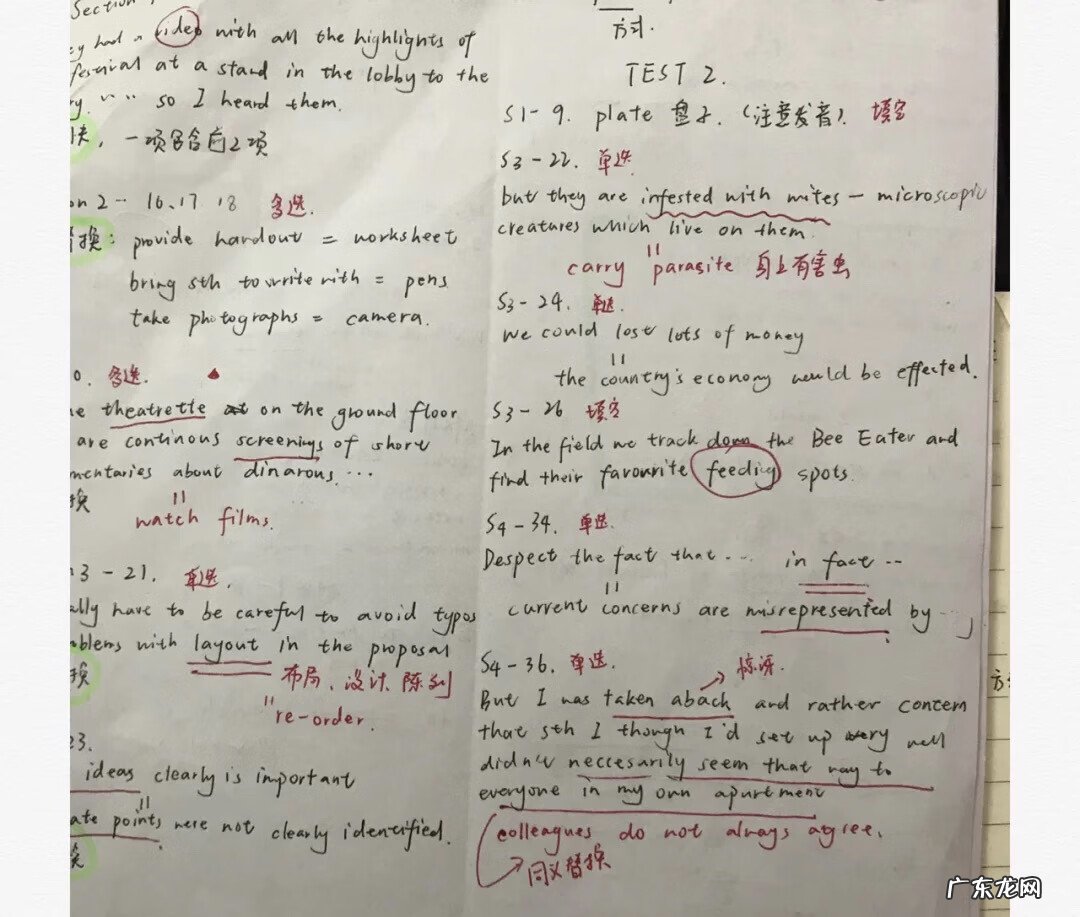 Section
ey had a video with all the highlights of
festival at a stand in the lobby to the
ry. so I heard them.
一项含有2项
on 2 - 16、17、18 多选.
替换: provide handout = worksheet
bring sth to write with = pens
take photographs = camera.
0. 多选.
e theatrette at on the ground floor
are continous screenings of short
mentaries about dinarous...
换 watch films.
3 - 21. 单选.
ally have to be careful to avoid typos
blems with layout in the proposal
换 布局、设计、陈列
re-order.
23.
ideas clearly is important
ate points were not clearly identified.
方式.
TEST 2.
S1-9. plate 盘子. (注意发音). 填空
S3-22. 单选
but they are infested with mites — microscopic
creatures which live on them.
carry parasite 身上有害虫
S3-24. 单选.
we could lost lots of money
the country's economy would be effected.
S3-26 填空
In the field we track down the Bee Eater and
find their favourite feedig spots.
S4-34. 单选.
Despect the fact that... in fact..
current concerns are misrepresented by ...
S4-36. 单选. 惊讶.
But I was taken aback and rather concern
that sth I though I'd set up very well
didn't neccesarily seem that way to
everyone in my own apartment
colleagues do not always agree.
同义替换
广东龙网